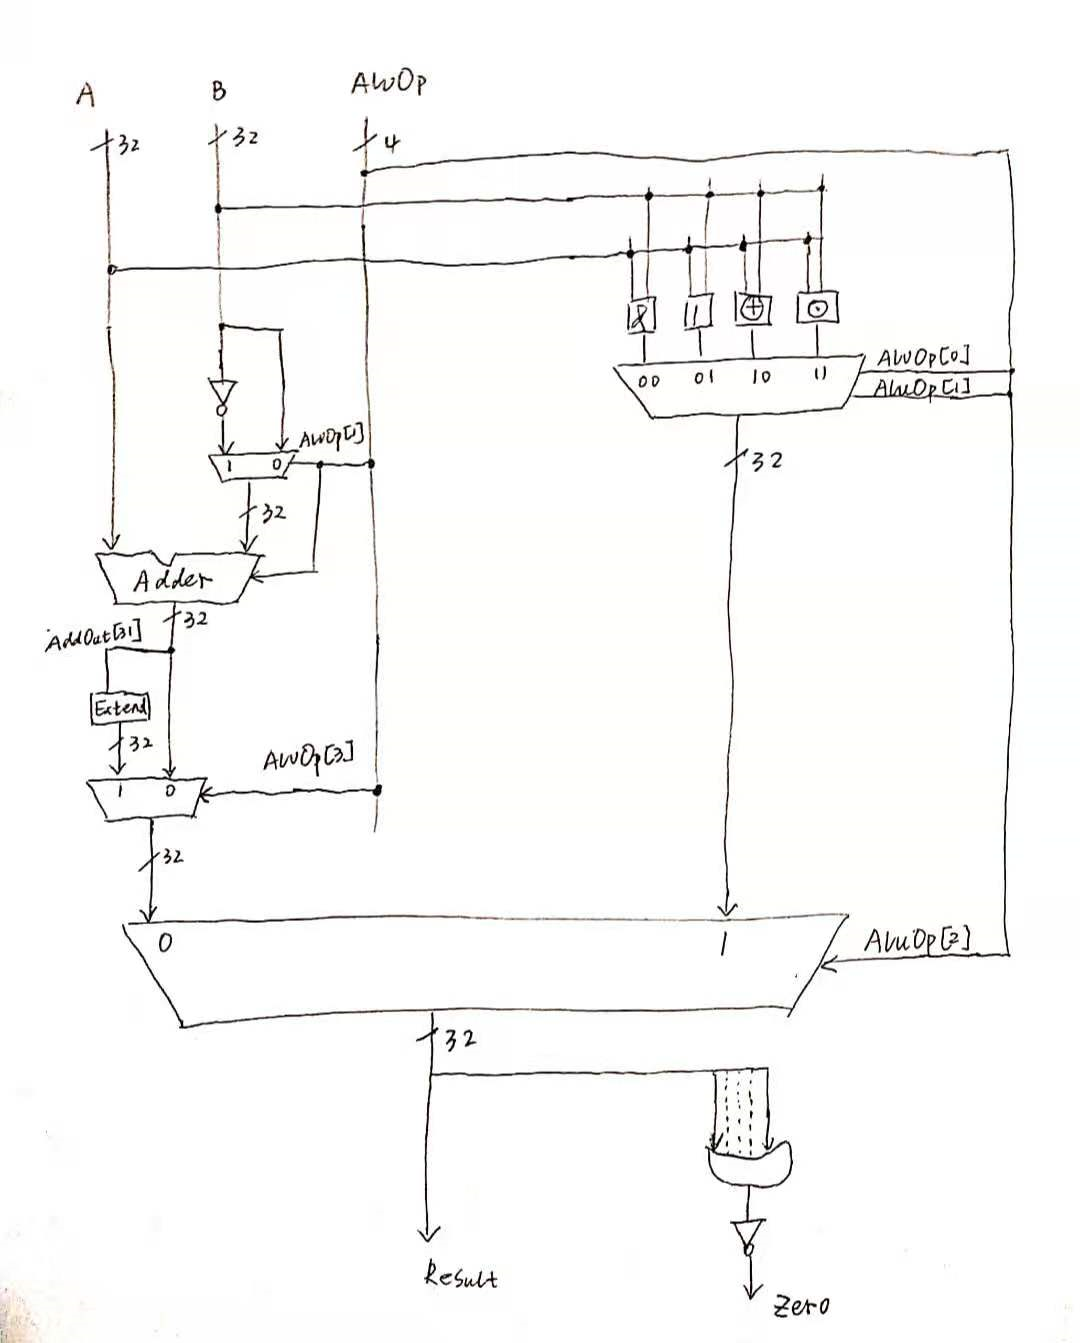 A B AluOp
32 32 4
& | ⊕ ⊙
AluOp[0]
00 01 10 11
AluOp[1]
AluOp[1]
1 0
32
32
Adder
32
AddOut[31]
Extend
32
AluOp[3]
1 0
32
0 1
AluOp[2]
32
Result
Zero